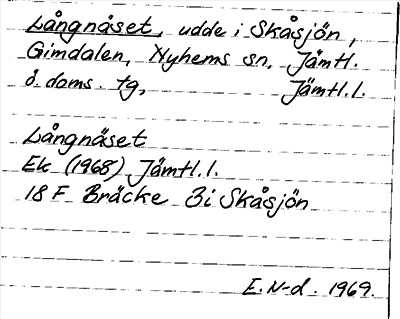 Långnäset, udde i Skåsjön,
Gimdalen, Nyhems sn, Jämtl.
ö. doms. tg, Jämtl.l.
Långnäset
Ek (1968) Jämtl.l.
18 F Bräcke 3i Skåsjön
E. N-d. 1969.